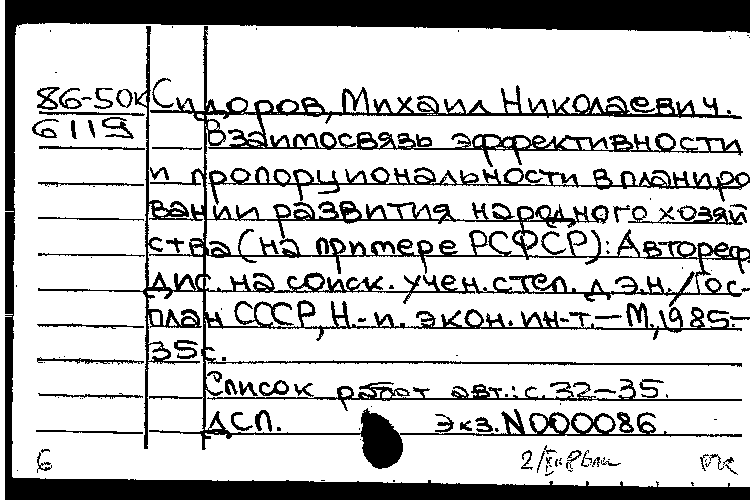 86-50к Сидоров, Михаил Николаевич.
6119 Взаимосвязь эффективности
и пропорциональности в планиро
вании развития народного хозяй
ства (на примере РСФСР): Автореф.
дис. на соиск. учен. степ. д.э.н./Гос-
план СССР, Н.-и. экон. ин-т.—М.,1985.—
35с.
Список работ авт.: с.32—35.
ДСП. Экз.N000086.
6